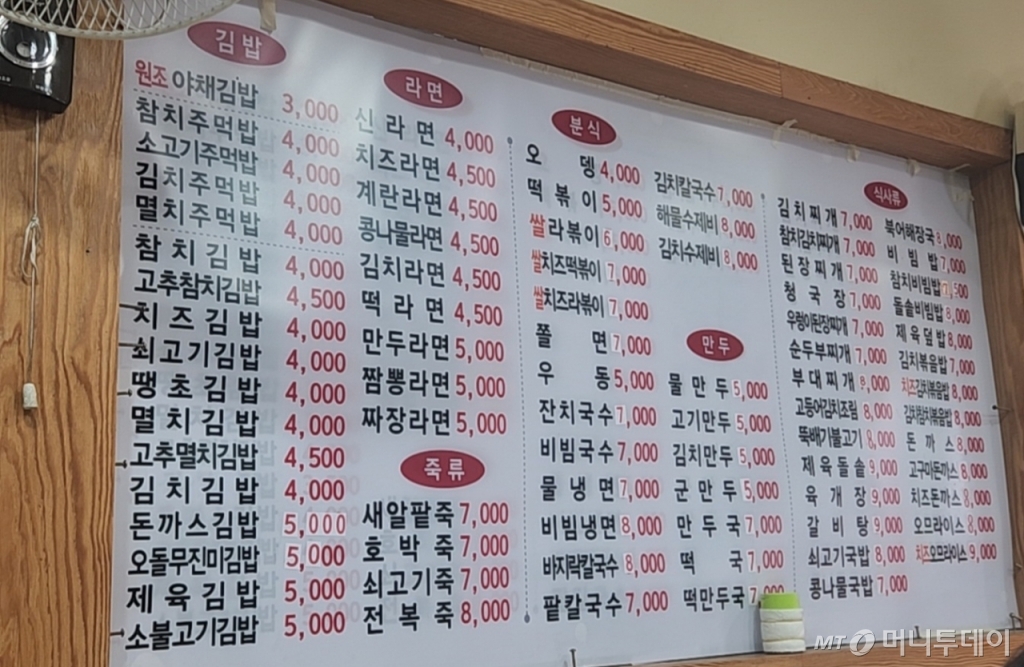 김밥
원조 야채김밥 3,000
참치주먹밥 4,000
소고기주먹밥 4,000
김치주먹밥 4,000
멸치주먹밥 4,000
참치김밥 4,000
고추참치김밥 4,500
치즈김밥 4,000
쇠고기김밥 4,000
땡초김밥 4,000
멸치김밥 4,000
고추멸치김밥 4,500
김치김밥 4,000
돈까스김밥 5,000
오돌무진미김밥 5,000
제육김밥 5,000
소불고기김밥 5,000
라면
신라면 4,000
치즈라면 4,500
계란라면 4,500
콩나물라면 4,500
김치라면 4,500
떡라면 4,500
만두라면 5,000
짬뽕라면 5,000
짜장라면 5,000
죽류
새알팥죽 7,000
호박죽 7,000
쇠고기죽 7,000
전복죽 8,000
분식
오뎅 4,000
떡볶이 5,000
쌀라볶이 6,000
쌀치즈떡볶이 7,000
쌀치즈라볶이 7,000
쫄면 7,000
우동 5,000
잔치국수 7,000
비빔국수 7,000
물냉면 7,000
비빔냉면 8,000
바지락칼국수 8,000
팥칼국수 7,000
김치칼국수 7,000
해물수제비 8,000
김치수제비 8,000
만두
물만두 5,000
고기만두 5,000
김치만두 5,000
군만두 5,000
만두국 7,000
떡국 7,000
떡만두국
식사류
김치찌개 7,000
참치김치찌개 7,000
된장찌개 7,000
청국장 7,000
우렁이된장찌개 7,000
순두부찌개 7,000
부대찌개 8,000
고등어김치조림 8,000
뚝배기불고기 8,000
제육돌솥 9,000
육개장 9,000
갈비탕 9,000
쇠고기국밥 8,000
콩나물국밥 7,000
북어해장국 8,000
비빔밥 7,000
참치비빔밥 7,500
돌솥비빔밥 8,000
제육덮밥 8,000
김치볶음밥 7,000
치즈김치볶음밥 8,000
김치참치볶음밥 8,000
돈까스 8,000
고구마돈까스 8,000
치즈돈까스 8,000
오므라이스 8,000
치즈오므라이스 9,000
MT 머니투데이